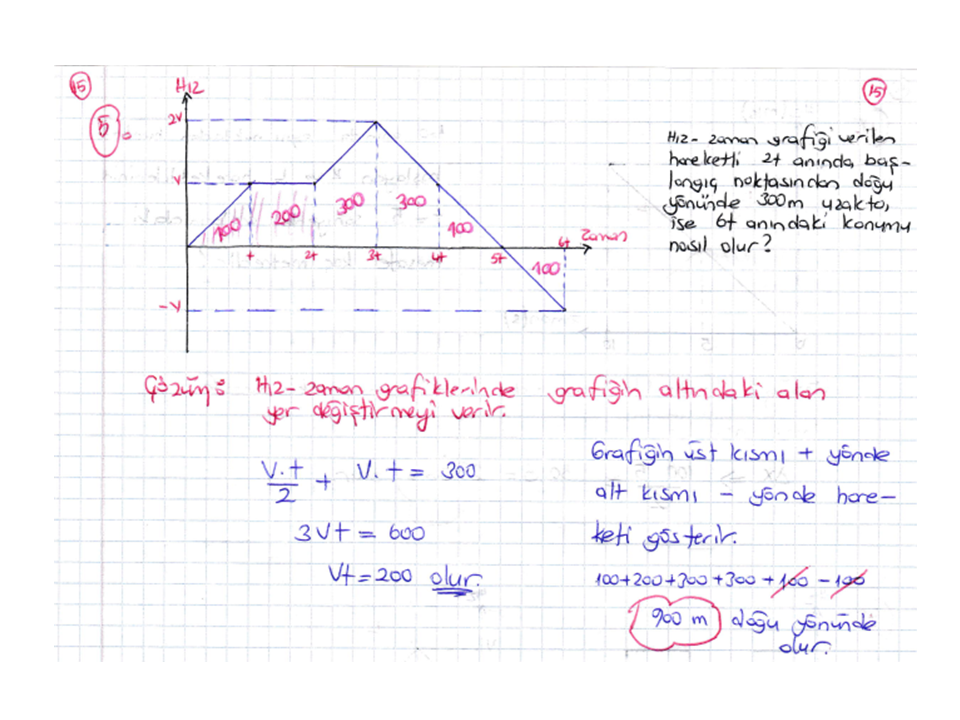 15
15
5.
Hız
2v
v
-v
100
200
300
300
100
100
t
2t
3t
4t
5t
6t
Zaman
Hız-zaman grafiği verilen
hareketli 2t anında baş-
langıç noktasından doğu
yönünde 300m uzakta,
ise 6t anındaki konumu
nasıl olur?
Çözüm: Hız-zaman grafiklerinde grafiğin altındaki alan
yer değiştirmeyi verir.
V.t/2 + V.t = 300
3Vt = 600
Vt = 200 olur.
Grafiğin üst kısmı + yönde
alt kısmı - yönde hare-
keti gösterir.
100+200+300+300+100-100
900 m doğu yönünde
olur.